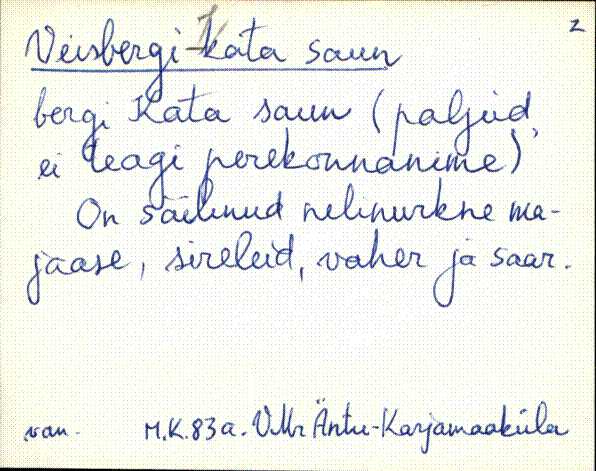 2
Veisbergi Kata saun
bergi Kata saun (paljud
ei teagi perekonnanime)
On säilinud nelinurkne ma-
jaase, sireleid, vaher ja saar.
van. M.K. 83 a. VMr Äntu-Karjamaaküla